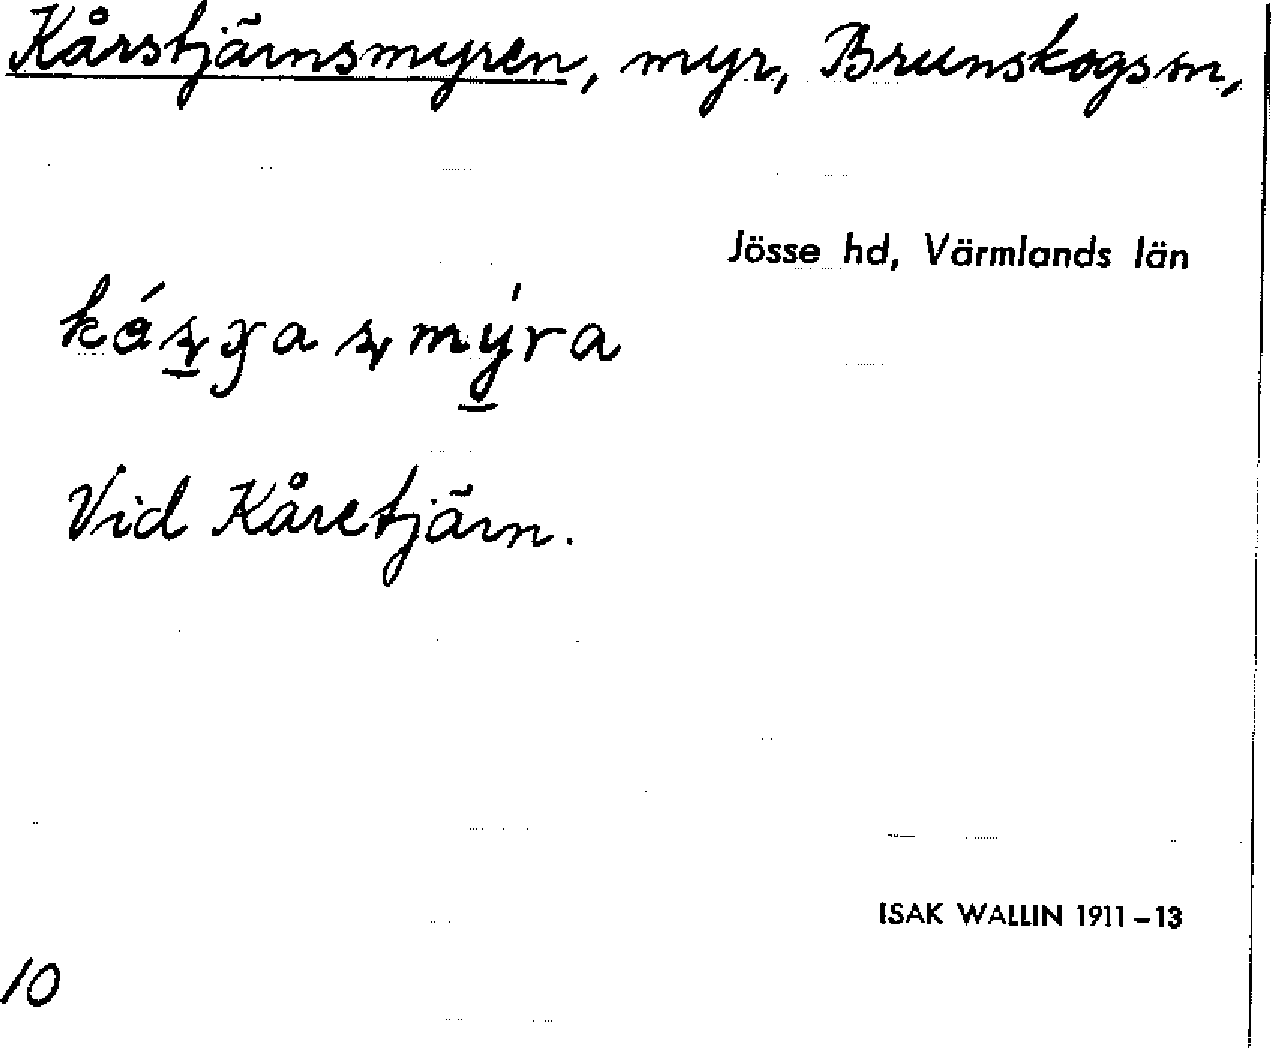 Kårstjärnsmyren, myr, Brunskogs sn,
Jösse hd, Värmlands län
Vid Kåretjärn.
ISAK WALLIN 1911–13
10